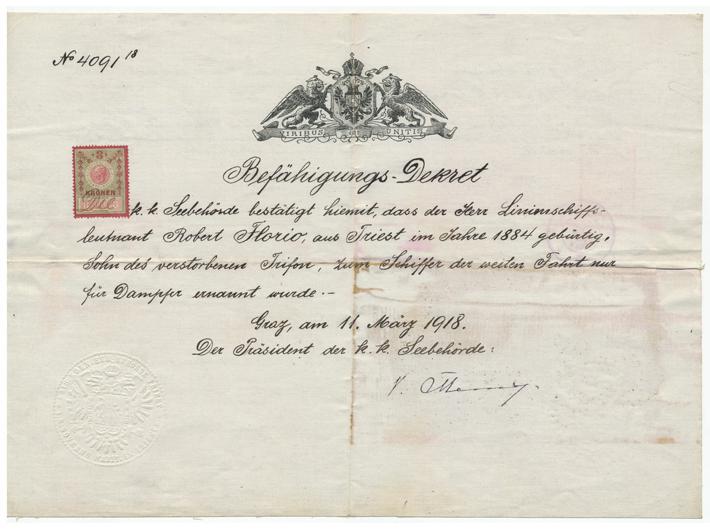 No 4091 18
VIRIBUS UNITIS
Befähigungs-Dekret
3
KRONEN
k. k. Seebehörde bestätigt hiemit, dass der Herr Linienschiffs-
leutnant Robert Florio, aus Triest im Jahre 1884 gebürtig,
Sohn des verstorbenen Trifon, zum Schiffer der weiten Fahrt nur
für Dampfer ernannt wurde.-
Graz, am 11. März 1918.
Der Präsident der k. k. Seebehörde: